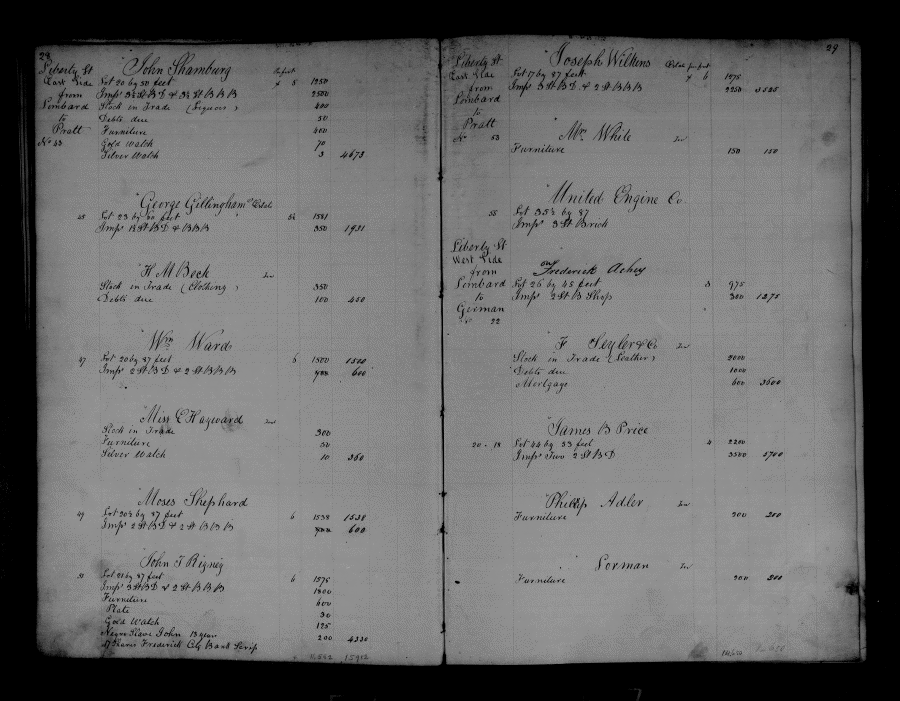 28
Liberty St
East Side
from
Lombard
to
Pratt
No 53
John Shamburg
Lot 20 by 50 feet 5 1250
Imps 3½ St B D & 3½ St B B B 2500
Stock in Trade (Liquors) 400
Debts due 50
Furniture 400
Gold Watch 70
Silver Watch 3 4673
George Gillinghams Estate
45 Lot 23 by feet 1581
Imps 1½ St B D & B B B 350 1931
H M Beck Ten
Stock in Trade (Clothing) 350
Debts due 100 450
Wm Ward
47 Lot 20 by 87 feet 6 1500 1500
Imps 2 St B D & 2 St B B B 600
Miss E Hayward Ten
Stock in Trade 300
Furniture 50
Silver Watch 10 360
Moses Shephard
49 Lot 20½ by 87 feet 6 1538 1538
Imps 2 St B D & 2 St B B B 600
John T Rigney
51 Lot 21 by 87 feet 6 1575
Imps 3 St B D & 2 St B B B 1800
Furniture 600
Plate 30
Gold Watch 125
Negro Slave John 13 years 200 4330
Shares Frederick City Bank Scrip
15912
29
Liberty St
East Side
from
Lombard
to
Pratt
No 53
Joseph Wilkins
Lot 17 by 87 feet 6 1275
Imps 3 St B D & 2 St B B B 2250 3525
Mrs White Ten
Furniture 150 150
United Engine Co
55 Lot 35½ by 87
Imps 3 St Brick
Liberty St
West Side
from
Lombard
to
German
No 22
Frederick Achey
Lot 26 by 45 feet 3 975
Imps 2 St B Shop 300 1275
F Seyler & Co Ten
Stock in Trade (Leather) 2000
Debts due 1000
Mortgage 600 3600
James B Price
20 - 18 Lot 44 by 53 feet 4 2200
Imps Two 2 St B D 3500 5700
Phillip Adler Ten
Furniture 200 200
Lorman Ten
Furniture 200 200